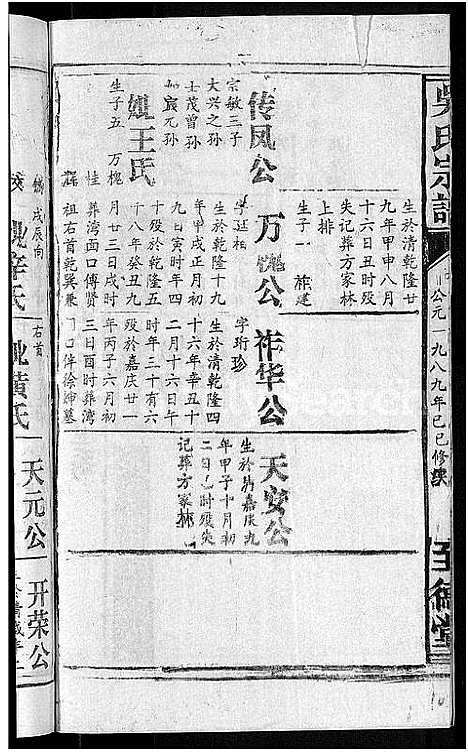 吴氏宗谱
公元一九八九年己巳修续
至德堂
传凤公
宗敏三子
大兴之孙
士茂曾孙
宸元孙
媲王氏
生子五 万槐
生於清乾隆廿
九年甲申八月
十六日丑时殁
失记葬方家林
上排
生子一 祚建
万槐公
字延柱
生於乾隆十九
年甲戌正月初
九日寅时年四
十殁於乾隆五
十八年癸丑九
月廿三日戌时
葬湾面口傅贤
祖右首乾巽兼
祚华公
字珩珍
生於清乾隆四
十六年辛丑十
二月十六日午
时年三十有六
殁於嘉庆廿一
年丙子六月初
三日酉时葬湾
天安公
生於清嘉庆九
年甲子十月初
二日巳时殁失
记葬方家林
戌辰向
媲辛氏
右首
媲黄氏
天元公
开荣公